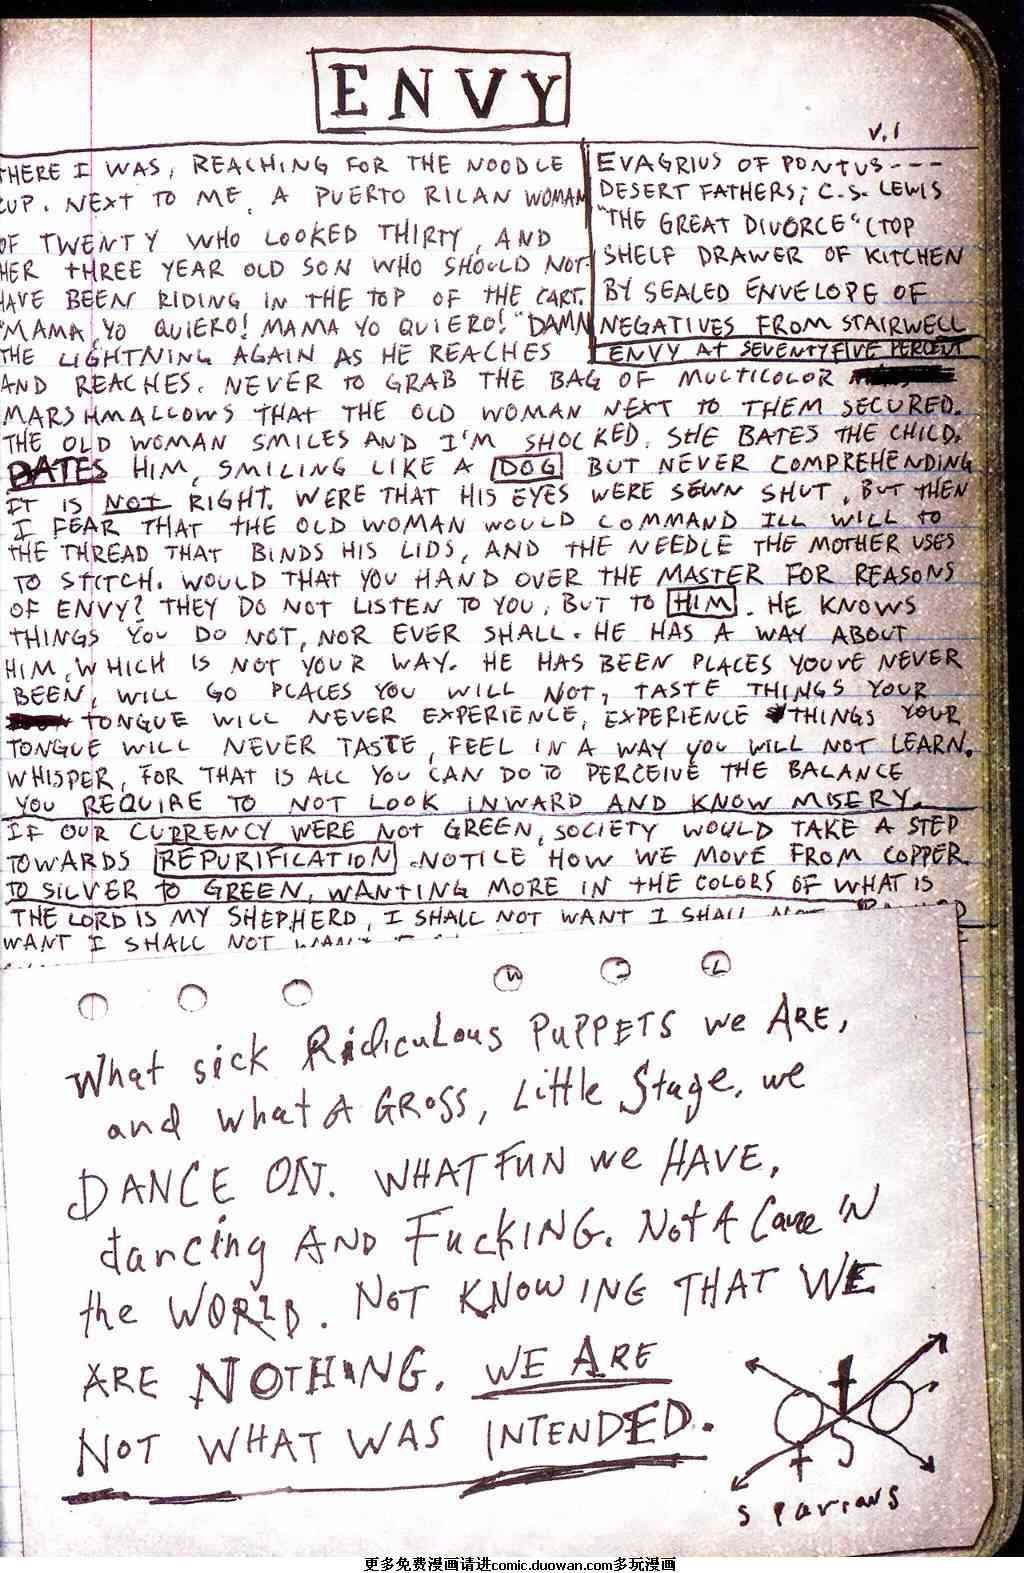 ENVY
v.1
THERE I WAS, REACHING FOR THE NOODLE
CUP. NEXT TO ME, A PUERTO RICAN WOMAN
OF TWENTY WHO LOOKED THIRTY, AND
HER THREE YEAR OLD SON WHO SHOULD NOT
HAVE BEEN RIDING IN THE TOP OF THE CART.
"MAMA, YO QUIERO! MAMA YO QUIERO!" DAMN
THE LIGHTNING AGAIN AS HE REACHES
EVAGRIUS OF PONTUS ---
DESERT FATHERS; C.S. LEWIS
"THE GREAT DIVORCE" (TOP
SHELF DRAWER OF KITCHEN
BY SEALED ENVELOPE OF
NEGATIVES FROM STAIRWELL
ENVY AT SEVENTYFIVE PERCENT
AND REACHES. NEVER TO GRAB THE BAG OF MULTICOLOR
MARSHMALLOWS THAT THE OLD WOMAN NEXT TO THEM SECURED.
THE OLD WOMAN SMILES AND I'M SHOCKED. SHE BATES THE CHILD.
BATES HIM, SMILING LIKE A DOG BUT NEVER COMPREHENDING
IT IS NOT RIGHT. WERE THAT HIS EYES WERE SEWN SHUT, BUT THEN
I FEAR THAT THE OLD WOMAN WOULD COMMAND ILL WILL TO
THE THREAD THAT BINDS HIS LIDS, AND THE NEEDLE THE MOTHER USES
TO STITCH. WOULD THAT YOU HAND OVER THE MASTER FOR REASONS
OF ENVY? THEY DO NOT LISTEN TO YOU, BUT TO HIM. HE KNOWS
THINGS YOU DO NOT, NOR EVER SHALL. HE HAS A WAY ABOUT
HIM, WHICH IS NOT YOUR WAY. HE HAS BEEN PLACES YOUVE NEVER
BEEN, WILL GO PLACES YOU WILL NOT, TASTE THINGS YOUR
TONGUE WILL NEVER EXPERIENCE, EXPERIENCE THINGS YOUR
TONGUE WILL NEVER TASTE, FEEL IN A WAY YOU WILL NOT LEARN.
WHISPER, FOR THAT IS ALL YOU CAN DO TO PERCEIVE THE BALANCE
YOU REQUIRE TO NOT LOOK INWARD AND KNOW MISERY.
IF OUR CURRENCY WERE NOT GREEN, SOCIETY WOULD TAKE A STEP
TOWARDS REPURIFICATION. NOTICE HOW WE MOVE FROM COPPER
TO SILVER TO GREEN, WANTING MORE IN THE COLORS OF WHAT IS
THE LORD IS MY SHEPHERD, I SHALL NOT WANT I SHALL NOT
WANT I SHALL NOT WANT
What sick Ridiculous PUPPETS we ARE,
and what A GROSS, Little Stage. we
DANCE ON. WHAT FUN we HAVE,
dancing AND FUCKING. Not A Care iN
the WORLD. NOT KNOWING THAT WE
ARE NOTHING. WE ARE
NOT WHAT WAS INTENDED.
更多免费漫画请进comic.duowan.com多玩漫画